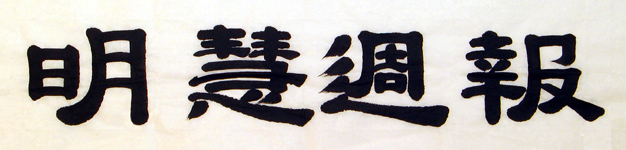 明慧週報